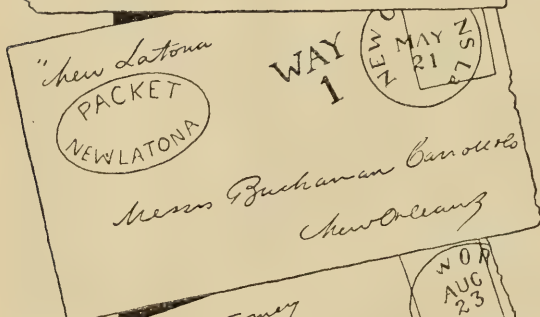 "New Latona
PACKET
NEWLATONA
WAY
1
NEW O
NS La
MAY
21
Messrs Buchanan Carroll & Co
New Orleans
WOR
AUG
23